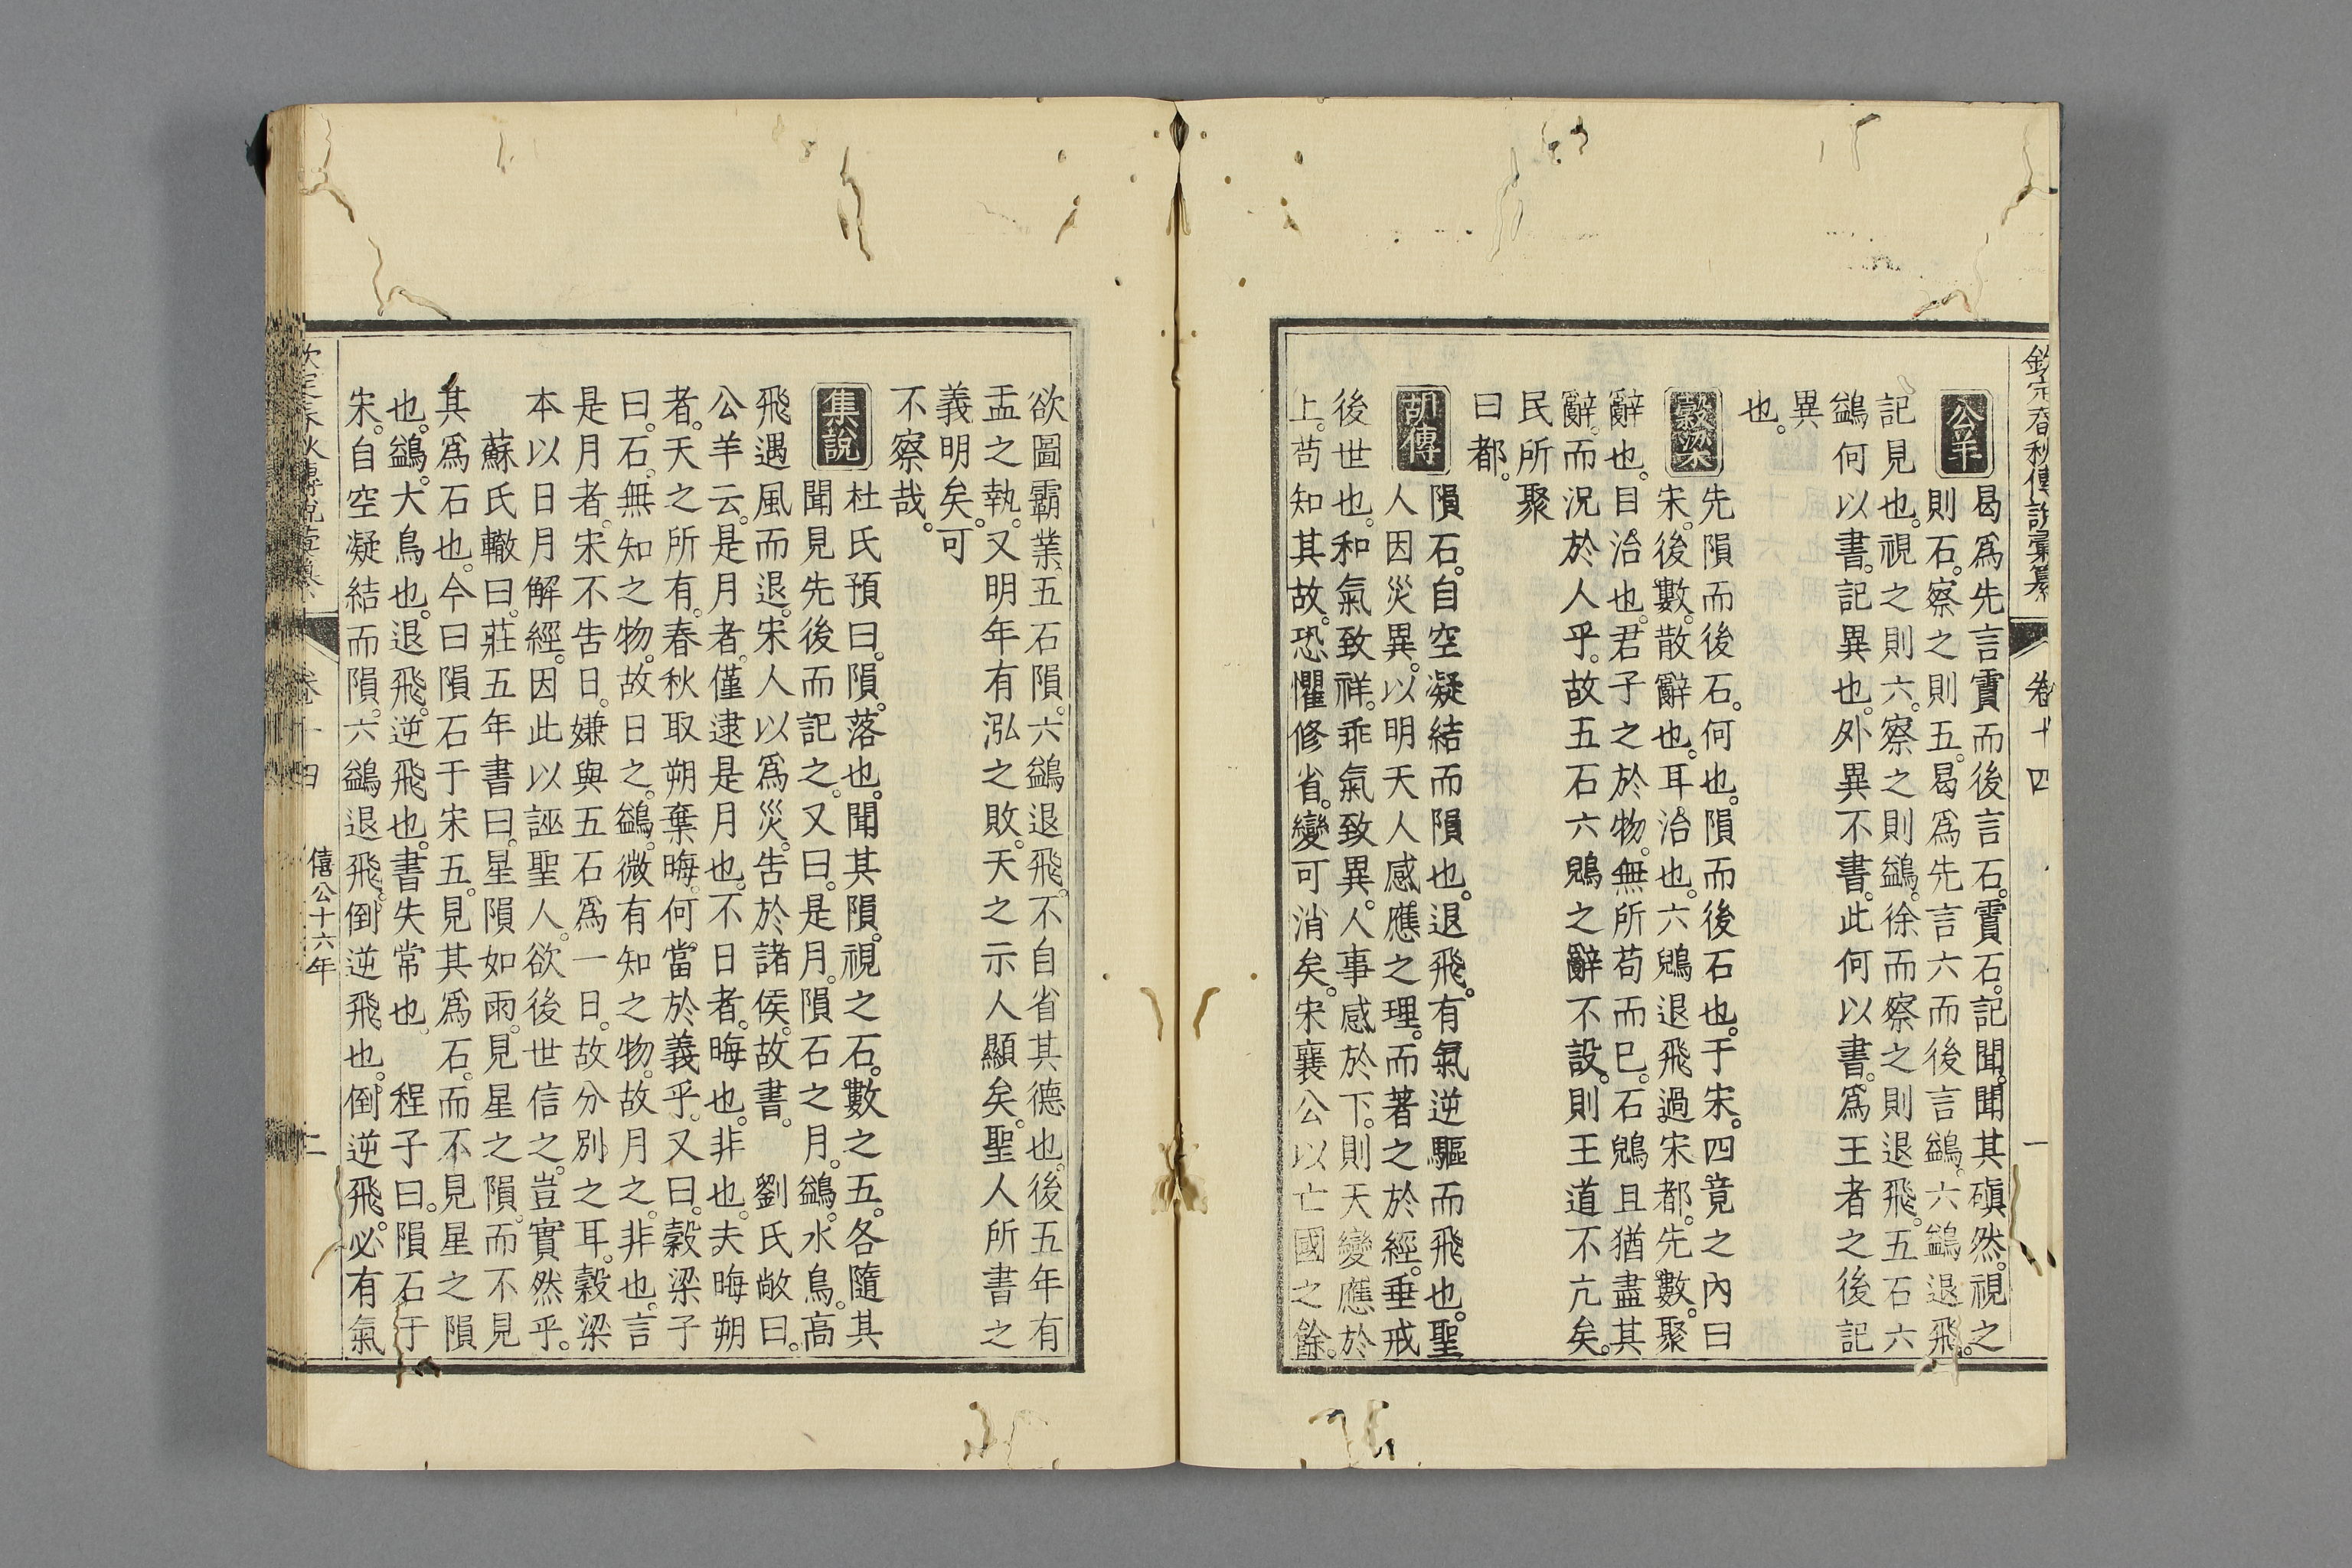 欽定春秋傳說彙纂 卷十四 一
公羊
曷爲先言霣而後言石。霣石。記聞。聞其磌然。視之
則石。察之則五。曷爲先言六而後言鷁。六鷁退飛。
記見也。視之則六。察之則鷁。徐而察之則退飛。五石六
鷁何以書。記異也。外異不書。此何以書。爲王者之後記
異
也。
穀梁
先隕而後石。何也。隕而後石也。于宋。四竟之內曰
宋。後數。散辭也。耳治也。六鶂退飛過宋都。先數。聚
辭也。目治也。君子之於物。無所苟而已。石鶂且猶盡其
辭。而況於人乎。故五石六鶂之辭不設。則王道不亢矣。
民所聚
曰都。
胡傳
隕石。自空凝結而隕也。退飛。有氣逆驅而飛也。聖
人因災異。以明天人感應之理。而著之於經。垂戒
後世也。和氣致祥。乖氣致異。人事感於下。則天變應於
上。苟知其故。恐懼修省。變可消矣。宋襄公以亡國之餘。
欲圖霸業。五石隕。六鷁退飛。不自省其德也。後五年有
盂之執。又明年有泓之敗。天之示人顯矣。聖人所書之
義明矣。可
不察哉。
集說
杜氏預曰。隕。落也。聞其隕。視之石。數之五。各隨其
聞見先後而記之。又曰。是月。隕石之月。鷁。水鳥。高
飛遇風而退。宋人以爲災。告於諸侯。故書。 劉氏敞曰。
公羊云。是月者。僅逮是月也。不日者。晦也。非也。夫晦朔
者。天之所有。春秋取朔棄晦。何當於義乎。又曰。穀梁子
曰。石。無知之物。故日之。鷁。微有知之物。故月之。非也。言
是月者。宋不告日。嫌與五石爲一日。故分別之耳。穀梁
本以日月解經。因此以誣聖人。欲後世信之。豈實然乎。
蘇氏轍曰。莊五年書曰。星隕如雨。見星之隕。而不見
其爲石也。今曰隕石于宋五。見其爲石。而不見星之隕
也。鷁。大鳥也。退飛。逆飛也。書失常也。 程子曰。隕石于
宋。自空凝結而隕。六鷁退飛。倒逆飛也。倒逆飛。必有氣
欽定春秋傳說彙纂 卷十四 僖公十六年 二